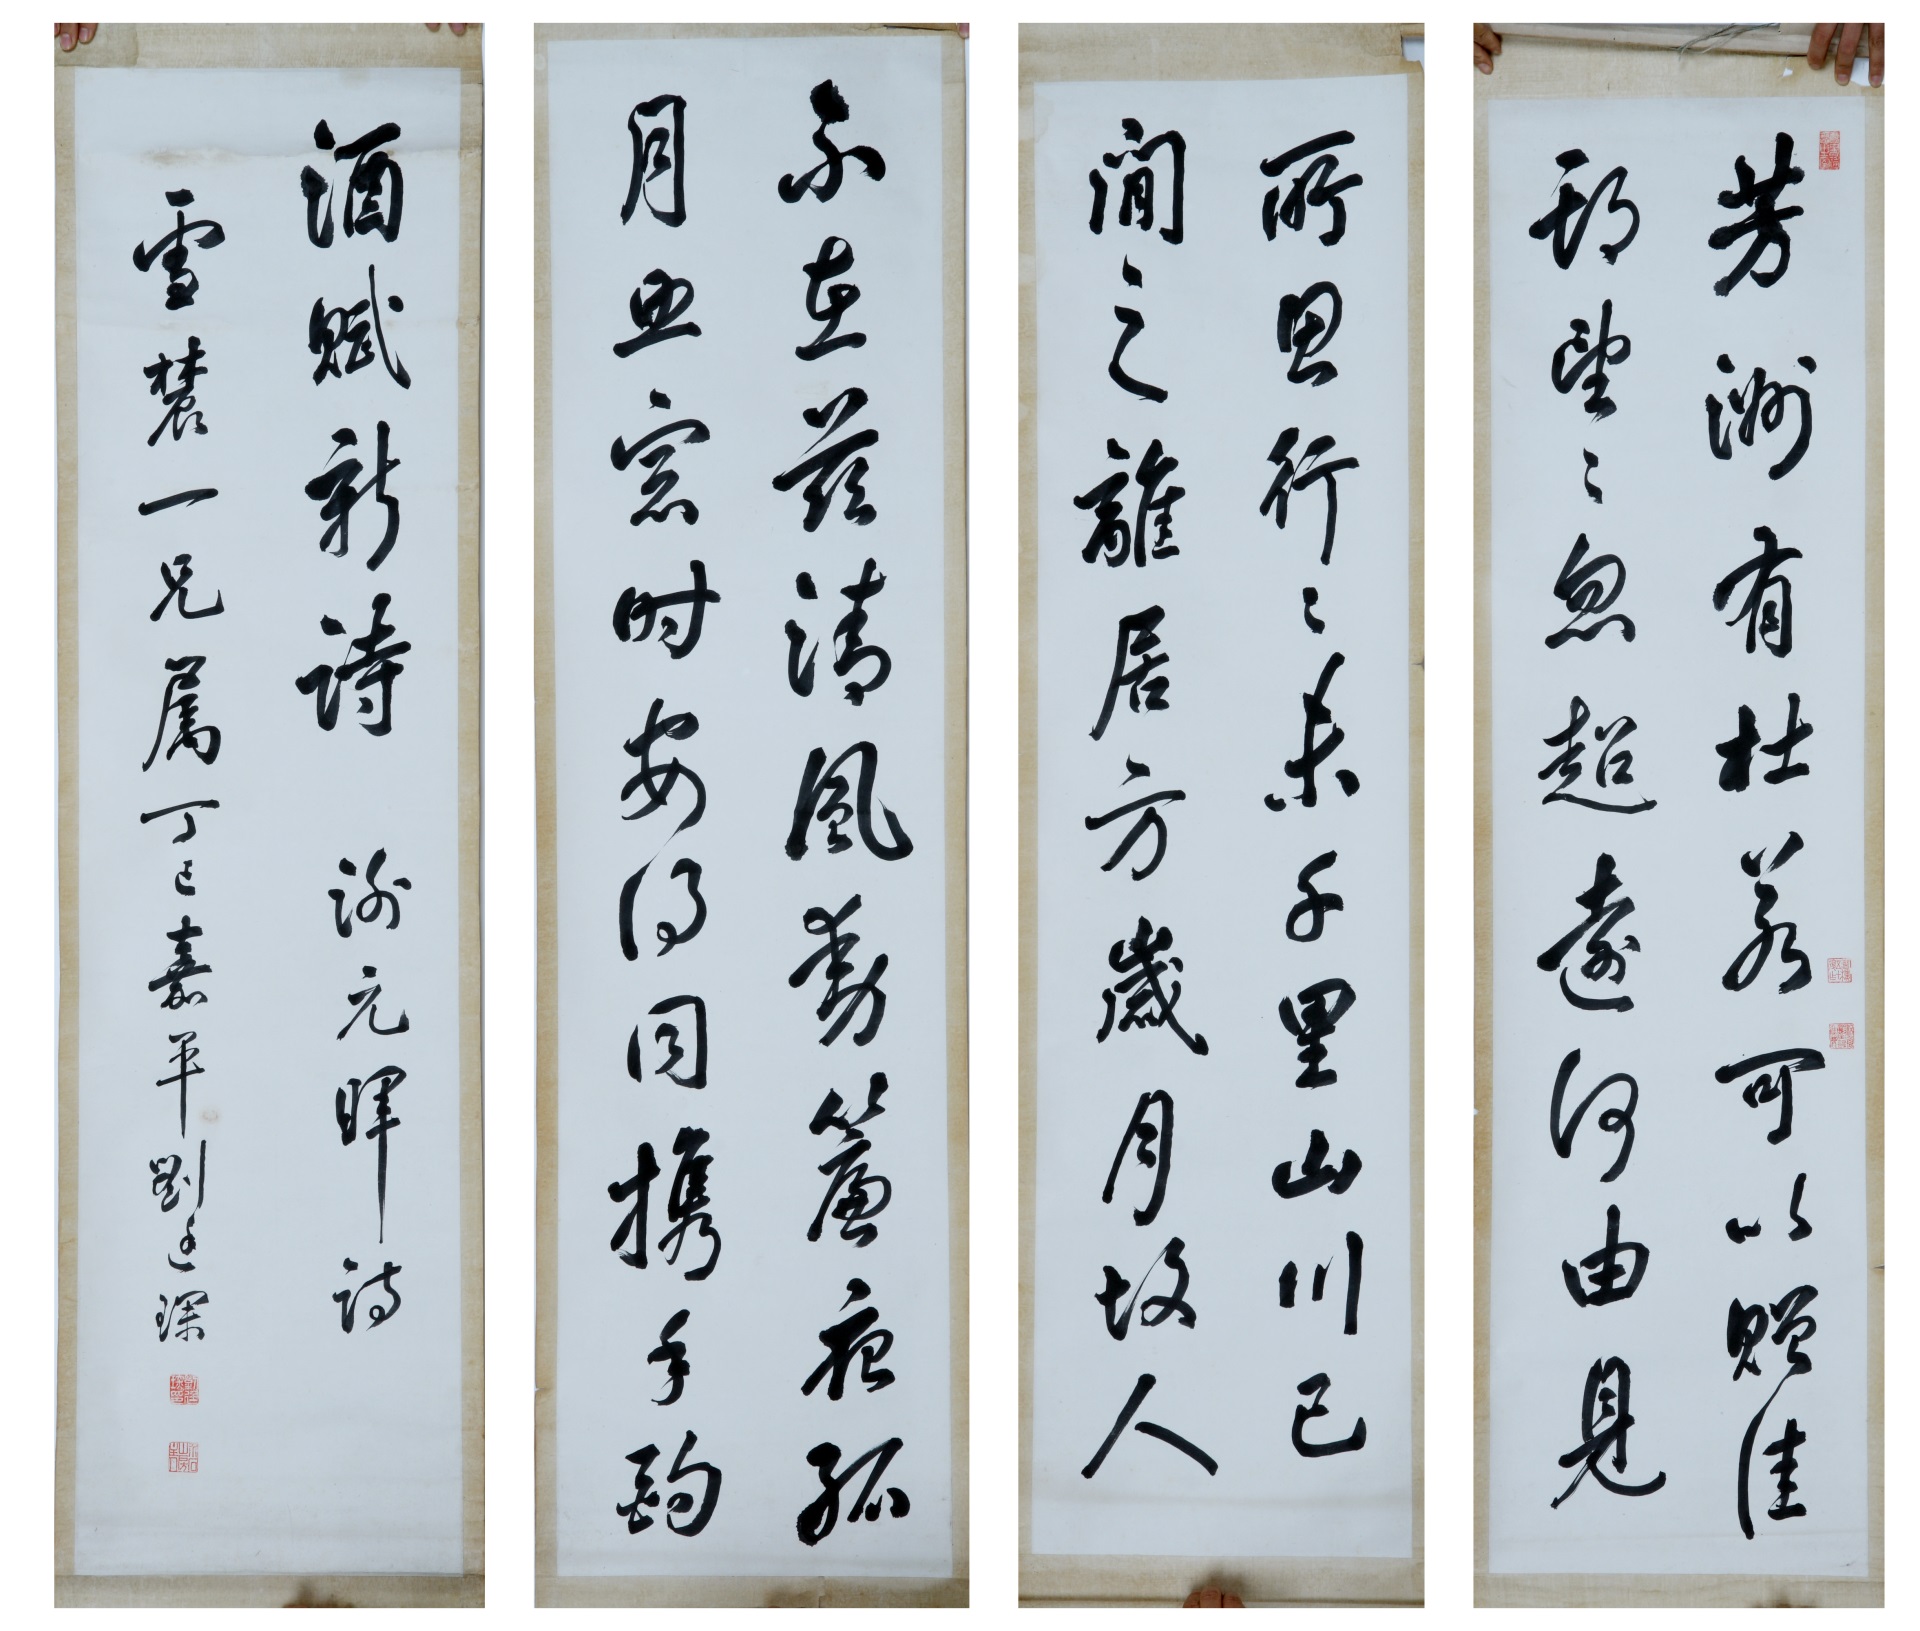 芳洲有杜若可以贈佳
期望〻忽超遠何由見
所思行〻未千里山川已
間之離居方歲月故人
不在茲清風動簾夜孤
月照窓時安得同携手酌
酒賦新詩 謝元暉詩
雪農一兄屬丁巳嘉平劉廷琛